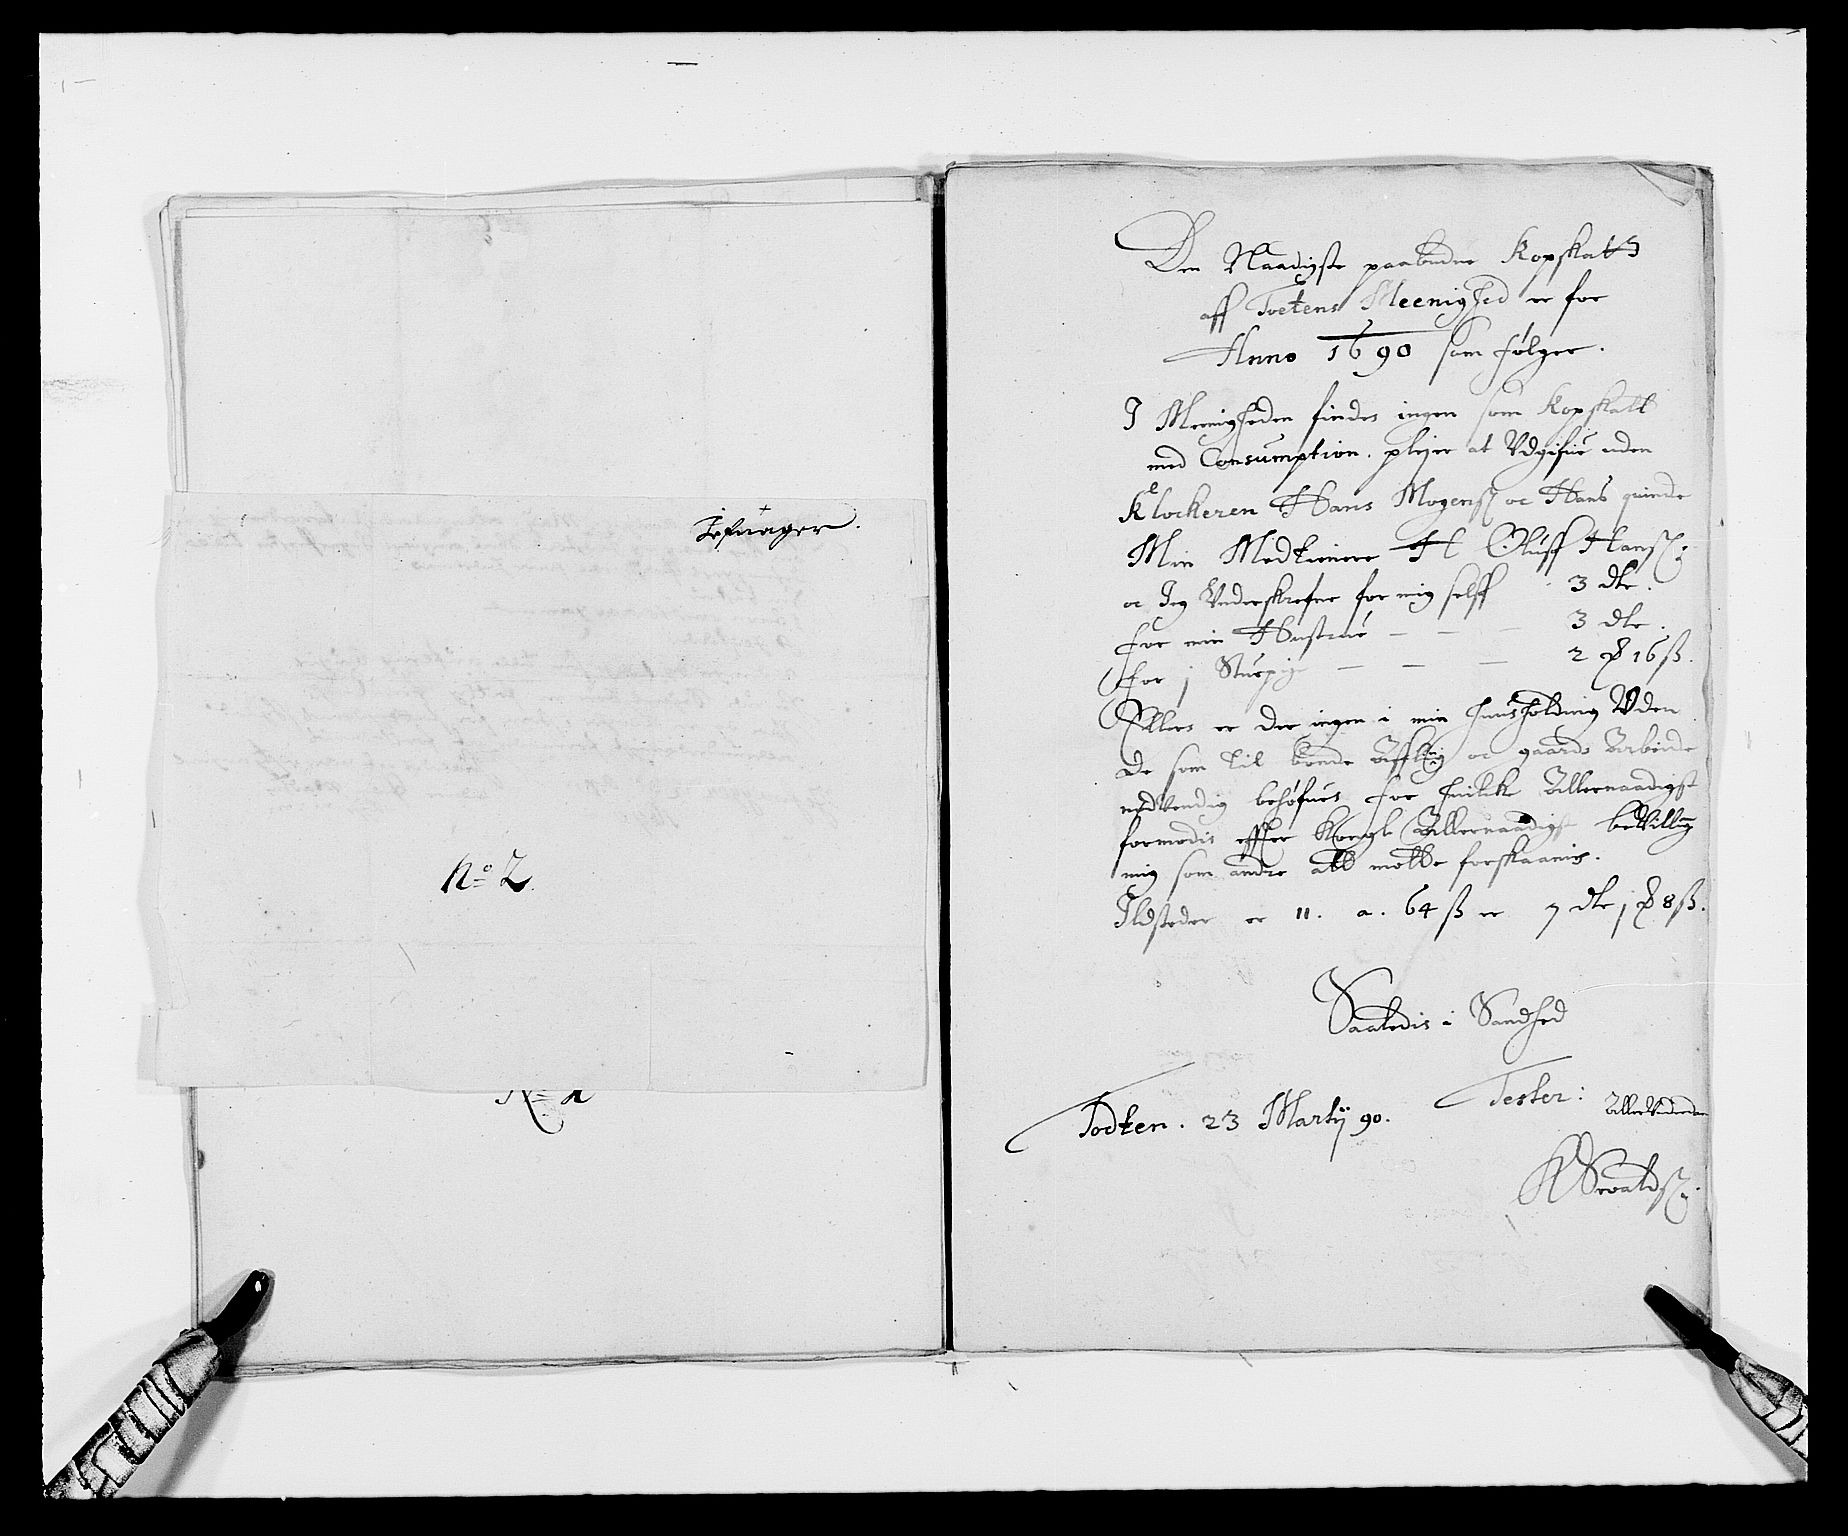 Jefnager.
No 2
Den Naadigste paabudne Kopskatt
aff Toetens Meenighed er for
Anno 1690 som følger.
I Meenigheden findes ingen som Kopskatt
med Consumption. plejer at Udgifue uden
Klockeren Hans Mogenss oc Hans quinde
Min Medtienere H Oluff Hanss:
oc Jeg Underskrefne for mig selff 3 dle.
for min Hustrue - - - 3 dle.
for j Stuepige - - - 2 ℔ 16 ß.
Ellers er der ingen i min huusholdning Uden
de som til bonde Affling oc gaards Arbeide
nødvendig behøfues for huilke Allernaadigst
formodis effter Kongl Allernaadigst beVilling
mig som andre att motte forskaanis.
Ildsteder er 11. a. 64 ß er 7 dle j ℔ 8 ß.
Saaledis i Sandhed
Tester:
Todten. 23 Martij 90.